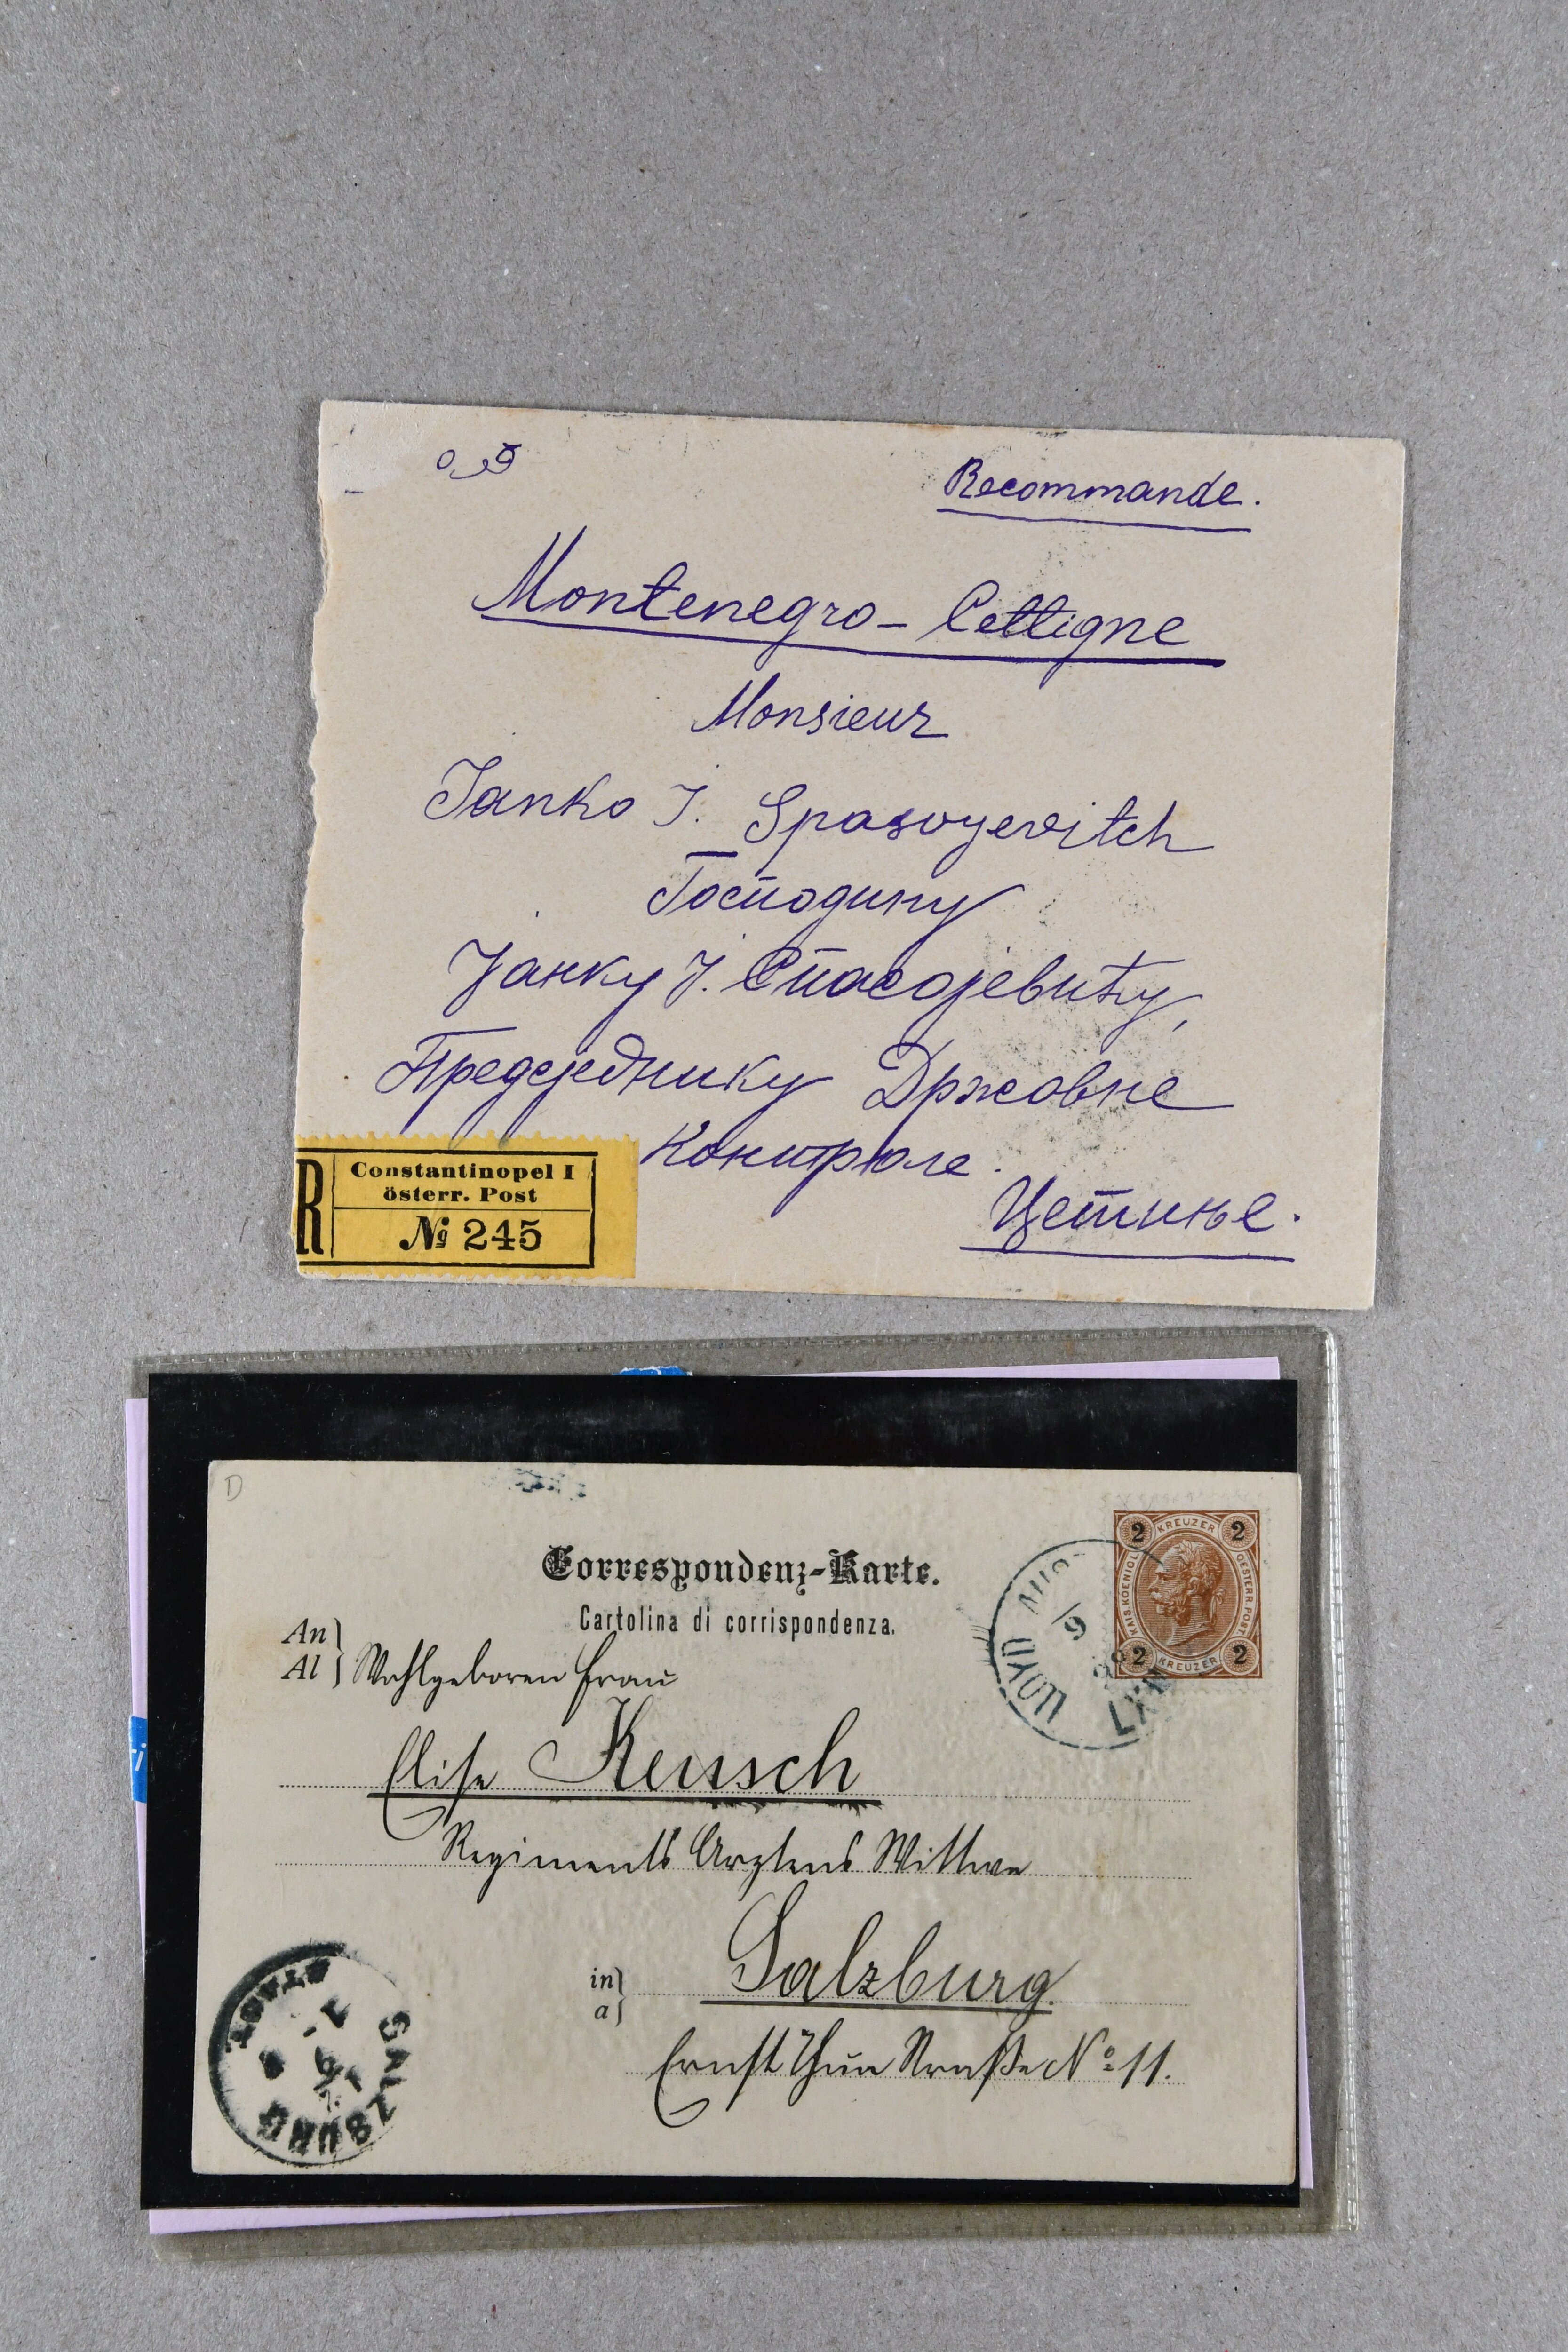 Recommande.
Montenegro - Cettigne
Monsieur
Janko J. Spasoyevitch
Господину
Јанку Ј. Спасојевићу,
Предсједнику Државне
Контроле.
Цетиње.
R
Constantinopel I
österr. Post
№ 245
D
Correspondenz-Karte.
Cartolina di corrispondenza.
2 KREUZER 2
KAIS. KOENIGL. OESTERR. POST
2 KREUZER 2
LLOYD AUST
An
Al
Wohlgeboren Frau
Elise Keusch
Regiments Arztens Wittwe
in
a
Salzburg.
Ernst Thun Straße No 11.
SALZBURG STADT